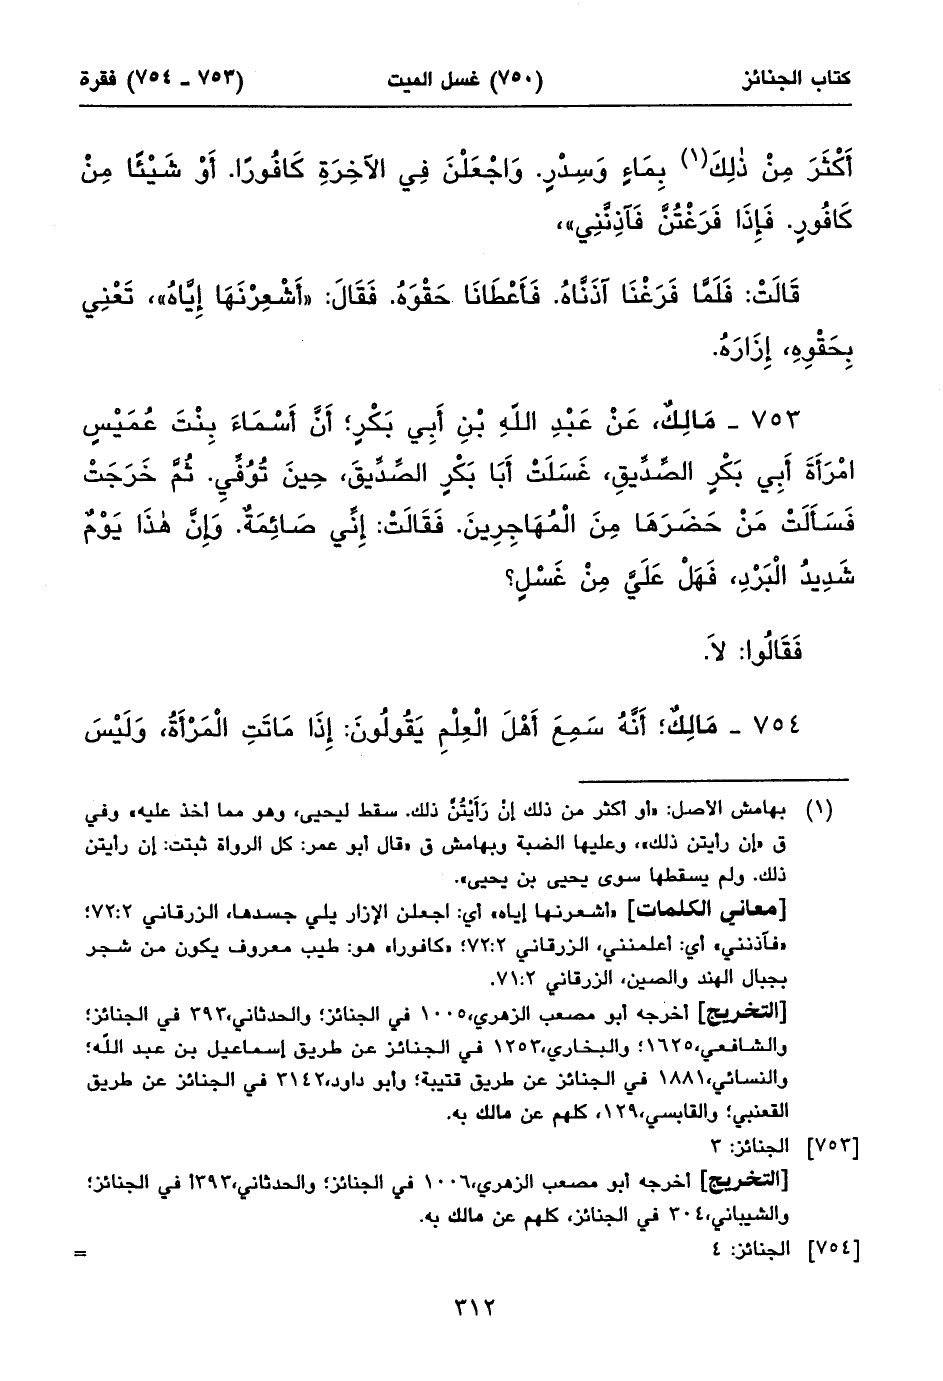 كتاب الجنائز (٧٥٠) غسل الميت (٧٥٣ ـ ٧٥٤) فقرة
أَكْثَرَ مِنْ ذٰلِكَ(١) بِمَاءٍ وَسِدْرٍ. وَاجْعَلْنَ فِي الآخِرَةِ كَافُورًا. أَوْ شَيْئًا مِنْ
كَافُورٍ. فَإِذَا فَرَغْتُنَّ فَآذِنَّنِي»،
قَالَتْ: فَلَمَّا فَرَغْنَا آذَنَّاهُ. فَأَعْطَانَا حَقْوَهُ. فَقَالَ: «أَشْعِرْنَهَا إِيَّاهُ»، تَعْنِي
بِحَقْوِهِ، إِزَارَهُ.
٧٥٣ ـ مَالِكٌ، عَنْ عَبْدِ اللّٰهِ بْنِ أَبِي بَكْرٍ؛ أَنَّ أَسْمَاءَ بِنْتَ عُمَيْسٍ
امْرَأَةَ أَبِي بَكْرٍ الصِّدِّيقِ، غَسَلَتْ أَبَا بَكْرٍ الصِّدِّيقَ، حِينَ تُوُفِّي. ثُمَّ خَرَجَتْ
فَسَأَلَتْ مَنْ حَضَرَهَا مِنَ الْمُهَاجِرِينَ. فَقَالَتْ: إِنِّي صَائِمَةٌ. وَإِنَّ هٰذَا يَوْمٌ
شَدِيدُ الْبَرْدِ، فَهَلْ عَلَيَّ مِنْ غَسْلٍ؟
فَقَالُوا: لاَ.
٧٥٤ ـ مَالِكٌ؛ أَنَّهُ سَمِعَ أَهْلَ الْعِلْمِ يَقُولُونَ: إِذَا مَاتَتِ الْمَرْأَةُ، وَلَيْسَ
(١) بهامش الأصل: «أو أكثر من ذلك إنْ رَأَيْتُنَّ ذلك. سقط ليحيى، وهو مما أخذ عليه» وفي
ق «إن رأيتن ذلك»، وعليها الضبة وبهامش ق «قال أبو عمر: كل الرواة ثبتت: إن رأيتن
ذلك. ولم يسقطها سوى يحيى بن يحيى».
[معاني الكلمات] «أشعرنها إياه» أي: اجعلن الإزار يلي جسدها، الزرقاني ٧٢:٢؛
«فآذنني» أي: أعلمنني، الزرقاني ٧٢:٢؛ «كافورا» هو: طيب معروف يكون من شجر
بجبال الهند والصين، الزرقاني ٧١:٢.
[التخريج] أخرجه أبو مصعب الزهري،١٠٠٥ في الجنائز؛ والحدثاني،٣٩٣ في الجنائز؛
والشافعي،١٦٢٥؛ والبخاري،١٢٥٣ في الجنائز عن طريق إسماعيل بن عبد اللّٰه؛
والنسائي،١٨٨١ في الجنائز عن طريق قتيبة؛ وأبو داود،٣١٤٢ في الجنائز عن طريق
القعنبي؛ والقابسي،١٢٩، كلهم عن مالك به.
[٧٥٣] الجنائز: ٣
[التخريج] أخرجه أبو مصعب الزهري،١٠٠٦ في الجنائز؛ والحدثاني،٣٩٣أ في الجنائز؛
والشيباني،٣٠٤ في الجنائز، كلهم عن مالك به.
[٧٥٤] الجنائز: ٤ =
٣١٢